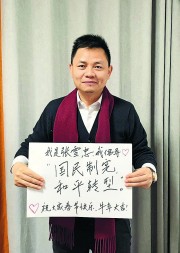 我是张雲忠 我倡导♡
"国民制宪,
和平转型。"
♡祝大家春节快乐、牛年大吉!